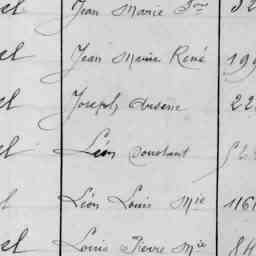 el Jean Marie 
el Jean Marie René 199
el Joseph Arsène 22
el Léon Constant
el Léon Louis Mie 116
el Louis Pierre Mie 84